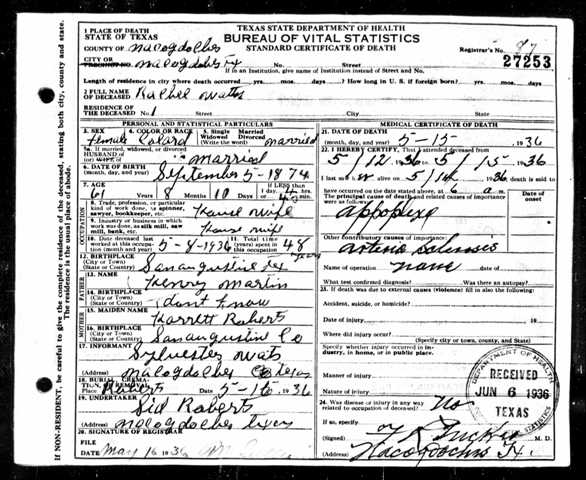 TEXAS STATE DEPARTMENT OF HEALTH
BUREAU OF VITAL STATISTICS
STANDARD CERTIFICATE OF DEATH
1 PLACE OF DEATH
STATE OF TEXAS
COUNTY OF Nacogdoches
CITY OR PRECINCT NO. Nacogdoches Tx No. Street
Registrar's No. 87
27253
If in an Institution, give name of Institution instead of Street and No.
Length of residence in city where death occurred yrs. mos. days. How long in U. S. if foreign born? yrs. mos. days.
2 FULL NAME OF DECEASED Rachel Watts
RESIDENCE OF THE DECEASED No. 1 Street City State
PERSONAL AND STATISTICAL PARTICULARS
3. SEX Female 4. COLOR OR RACE Kolard 5. Single Married Widowed Divorced (Write the word) married
5a. If married, widowed, or divorced
HUSBAND OF (or) WIFE OF married
6. DATE OF BIRTH (month, day, and year) September 5-1874
7. AGE 61 Years 8 Months 10 Days If LESS than 1 day hrs. min.
OCCUPATION
8. Trade, profession, or particular kind of work done, as spinner, sawyer, bookkeeper, etc. House wife
9. Industry or business in which work was done, as silk mill, saw mill, bank, etc. House wife
10. Date deceased last worked at this occupation (month and year) 5-8-1936 11. Total time (years) spent in this occupation 48 years
12. BIRTHPLACE City or (Town) (State or Country) Sanaugustine Tex
FATHER
13. NAME Henry Martin
14. BIRTHPLACE City or (Town) (State or Country) dont know
MOTHER
15. MAIDEN NAME Harrett Roberts
16. BIRTHPLACE City or (Town) (State or Country) Sanaugustin Co
17. INFORMANT Sylvester Wats
(Address) Nacogdoches Co texas
18. BURIAL, CREMATION, REMOVAL
Place Roberts Date 5-16 1936
19. UNDERTAKER Sid Roberts
(Address) nacogdoches texas
20. SIGNATURE OF REGISTRAR
FILE DATE May 16 1936
MEDICAL CERTIFICATE OF DEATH
21. DATE OF DEATH (month, day, and year) 5-15- 1936
22. I HEREBY CERTIFY, That I attended deceased from
5/12 1936 to 5/15 1936
I last saw alive on 5/14 1936, death is said to have
occurred on the date stated above, at 6 a m
The principal cause of death and related causes of importance were as follows: Date of onset
Appoplexe
Other contributory causes of importance:
Name of operation none date of
What test confirmed diagnosis? Was there an autopsy?
23. If death was due to external causes (violence) fill in also the following:
Accident, suicide, or homicide?
Date of injury
Where did injury occur?
(city or town, county, and State)
Specify whether injury occurred in industry, in home, or in public place.
Manner of injury
Nature of injury
24. Was disease or injury in any way related to occupation of deceased? No
If so, specify
(Signed) Tucker M. D.
(Address) Nacogdoches Tx.
DEPARTMENT OF HEALTH
RECEIVED
JUN 6 1936
TEXAS
VITAL STATISTICS